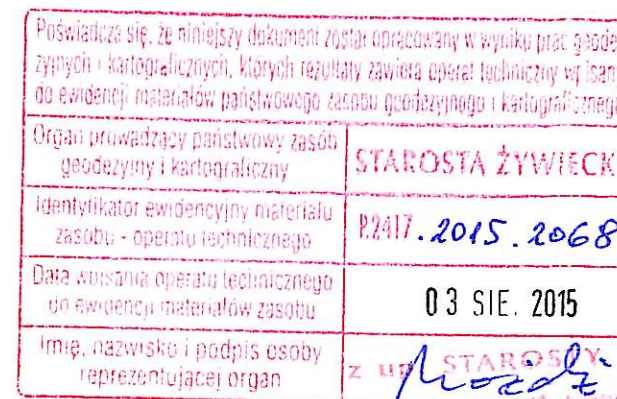 Poświadcza się, że niniejszy dokument został opracowany w wyniku prac geode
zyjnych i kartograficznych, których rezultaty zawiera operat techniczny wpisan
do ewidencji materiałów państwowego zasobu geodezyjnego i kartograficznego
Organ prowadzący państwowy zasób
geodezyjny i kartograficzny
STAROSTA ŻYWIECK
Identyfikator ewidencyjny materiału
zasobu - operatu technicznego
P.2417.2015.2068
Data wpisania operatu technicznego
do ewidencji materiałów zasobu
03 SIE. 2015
Imię, nazwisko i podpis osoby
reprezentującej organ
z up. STAROSTY